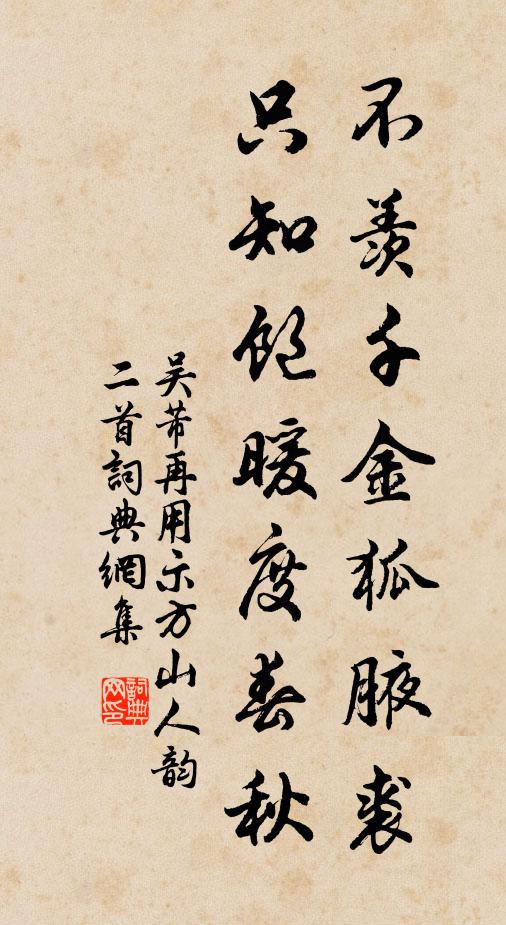 不羨千金狐腋裘
只知飽暖度春秋
吳芾再用示方山人韵
二首詞典網集
詞典网印